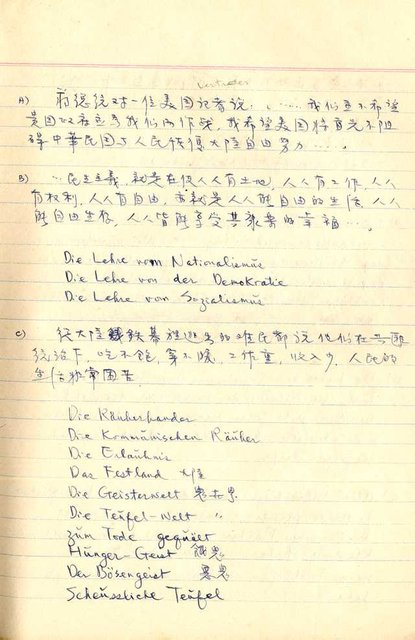 A) 蔣總統对一位美国記者說:「……我们並不希望
美国以存
我们而作战,我希望美国将首先不阻
碍中華民国与人民恢復大陸自由努力……」
B) 「民生主義,就是在使人人有土地,人人有工作,人人
有权利,人人有自由,
就是人人
自由的生活,人人
自由生存,人人皆能享受其
的幸福…」
Die Lehre vom Nationalismus
Die Lehre von der Demokratie
Die Lehre vom Sozialismus
C) 從大陸鐵幕
逃出的难民都說他们在
统治下,吃不飽,穿不暖,工作重,收入少,人民的
生活非常困苦
Die Räuberbander
Die Kommunischen Räuber
Die Erlaubnis
Das Festland 大陸
Die Geisterwelt 鬼世界
Die Teufel-Welt 〃
zum Tode gequält
Hunger-Geist 餓鬼
Der Bösengeist 惡鬼
Scheussliche Teufel